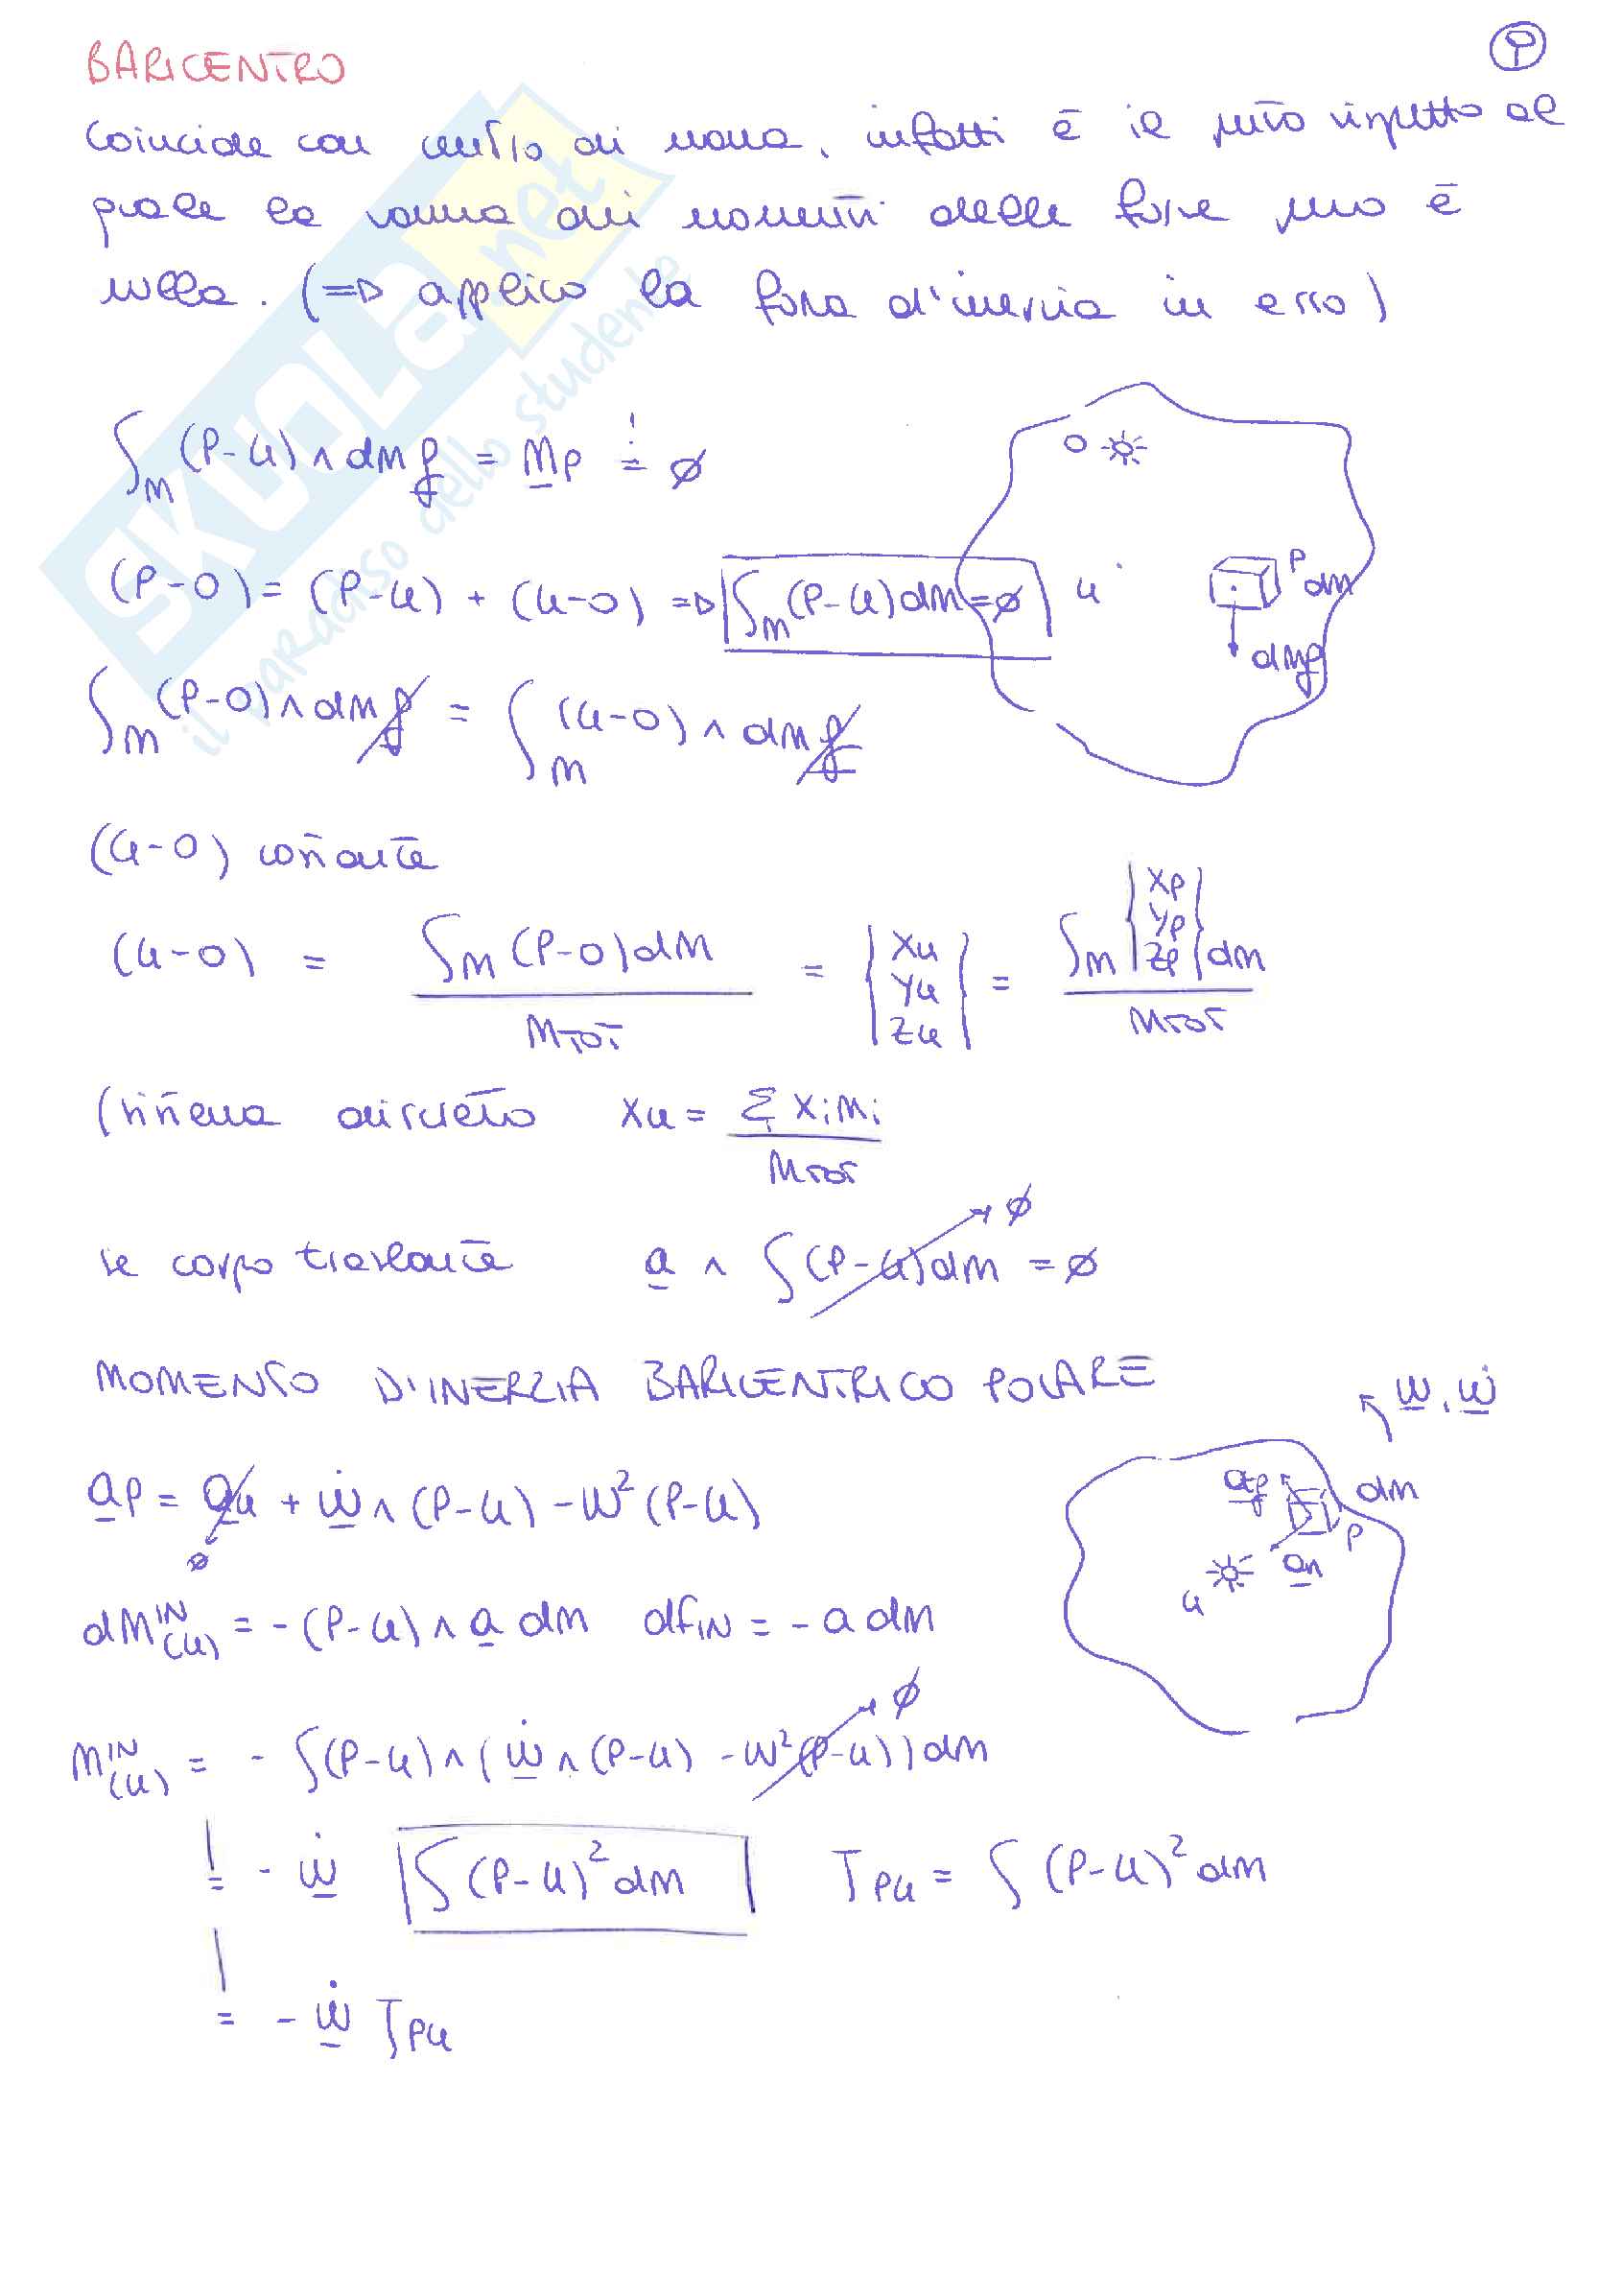 BARICENTRO
9
Coincide con centro di massa, infatti è il punto rispetto al
quale la somma dei momenti delle forze peso è
nulla. (=> applico la forza d'inerzia in esso)
∫m (P-G) ∧ dm g = Mp = ∅
O
(P-O) = (P-G) + (G-O) => ∫m (P-G) dm = ∅
G
P dm
dmg
∫m (P-O) ∧ dm g = ∫m (G-O) ∧ dm g
(G-O) costante
(G-O) = ∫m (P-O) dm / MTOT = { XG YG ZG } = ∫m { XP YP ZP } dm / MTOT
(sistema discreto XG = Σ Xi mi / MTOT
se corpo traslante a ∧ ∫ (P-G) dm = ∅ → ∅
MOMENTO D'INERZIA BARICENTRICO POLARE
ω, ω̇
aP = aG + ω̇ ∧ (P-G) - ω² (P-G)
∅
dm
P
an
G
dM(G)^IN = -(P-G) ∧ a dm dFIN = - a dm
M(G)^IN = - ∫ (P-G) ∧ ( ω̇ ∧ (P-G) - ω² (P-G) ) dm → ∅
= - ω̇ ∫ (P-G)² dm JPG = ∫ (P-G)² dm
= - ω̇ JPG
SKUOLA.net
il paradiso dello studente